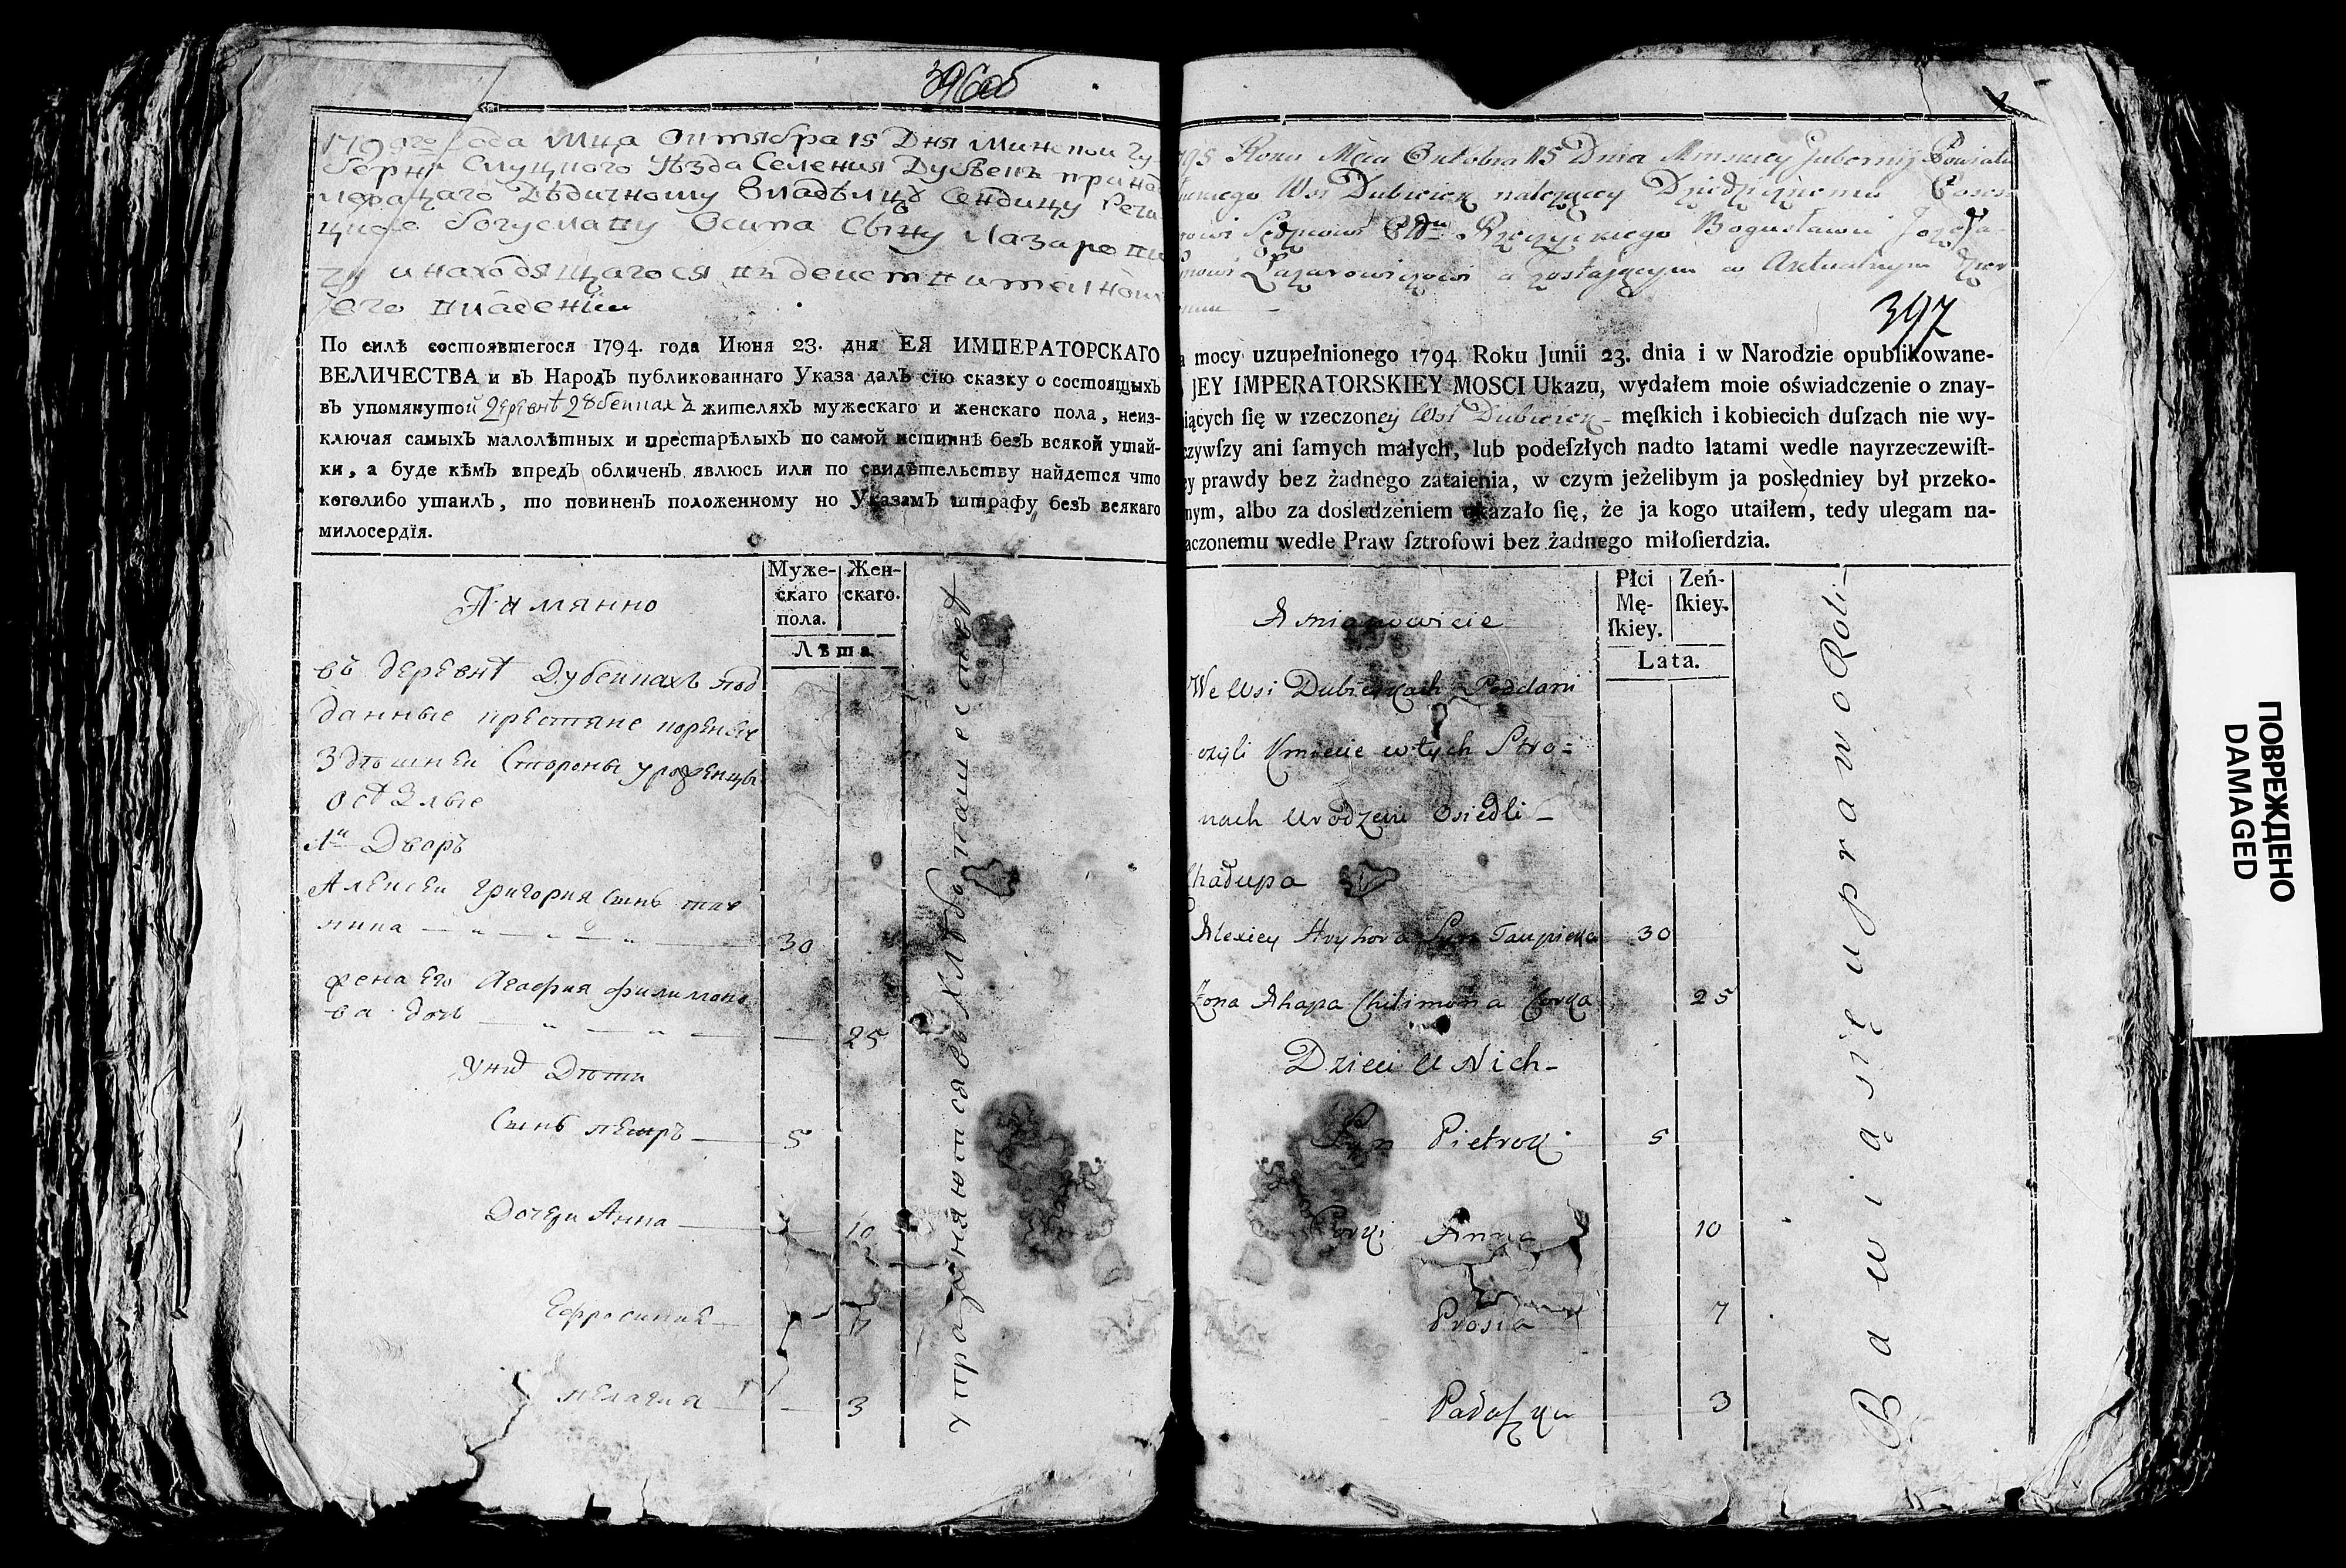 396об
1795го Года Мца Октября 15 Дня Минской Гу-
берніи Слуцкого Уѣзда Селения Дубеекъ принад
лежащаго Дѣдичному Владѣлцу
Богуславу Осипа Сыну Лазарови
чу и находящагося въ действителном
его владеніи
По силѣ состоявшегося 1794. года Июня 23. дня ЕЯ ИМПЕРАТОРСКАГО
ВЕЛИЧЕСТВА и въ Народъ публикованнаго Указа далъ сію сказку о состоящыхъ
въ упомянутой деревнѣ жителяхъ мужескаго и женскаго пола, неиз-
ключая самыхъ малолѣтных и престарѣлыхъ по самой истиннѣ безъ всякой утай-
ки, а буде кѣмъ впредъ обличенъ явлюсь или по свидѣтельству найдется что
коголибо утаилъ, то повиненъ положенному по Указамъ штрафу безъ всякаго
милосердїя.
А имянно
Муже-
скаго
пола.
Жен-
скаго.
Лѣта.
въ деревнѣ Дубейкахъ под
данные крестяне кореные
Здѣшней Стороны уроженцы
осѣдлые
1й Дворъ
Алексей Григория Сынъ
30
жена его Агафия Филимоно
ва дочь 25
У них Дѣти
Сынъ Петръ 5
Дочери Анна 10
Ефросиния 7
Пелагия 3
упражняются в хлѣбопашестве
1795 Roku Mca Oktobra 15 Dnia Minskiey Gubernij Powiatu
Wsi Dubieiek należącey Dziedzicznemu
Rzeczyckiego Bogusławu Jozefa
Łazarowiczowi a zostaiącym w Aktualnym
397
mocy uzupełnionego 1794 Roku Junii 23. dnia i w Narodzie opublikowane-
JEY IMPERATORSKIEY MOSCI Ukazu, wydałem moie oświadczenie o znay-
iących ſię w rzeczoney Wsi Dubieiek męſkich i kobiecich duſzach nie wy-
czywſzy ani ſamych małych, lub podeſzłych nadto latami wedle nayrzeczewiſt-
ey prawdy bez żadnego zataienia, w czym jeżelibym ja posledniey był przeko-
nym, albo za dosledzeniem okazało ſię, że ja kogo utaiłem, tedy ulegam na-
aczonemu wedle Praw ſztrofowi bez żadnego miłoſierdzia.
A mianowicie
Płci
Mę-
ſkiey.
Zeń-
ſkiey.
Lata.
We Wsi Dubieykach Poddani
czyli Kmiecie w tych Stro=
nach Urodzeni Osiedli
Chadupa
Alexiey Hryhora Syn 30
Zona Ahapa Chilimona Corka 25
Dzieci U Nich
Syn Pietrok 5
Corki Anna 10
Prosia 7
3
Bawią się uprawo Roli
ПОВРЕЖДЕНО
DAMAGED